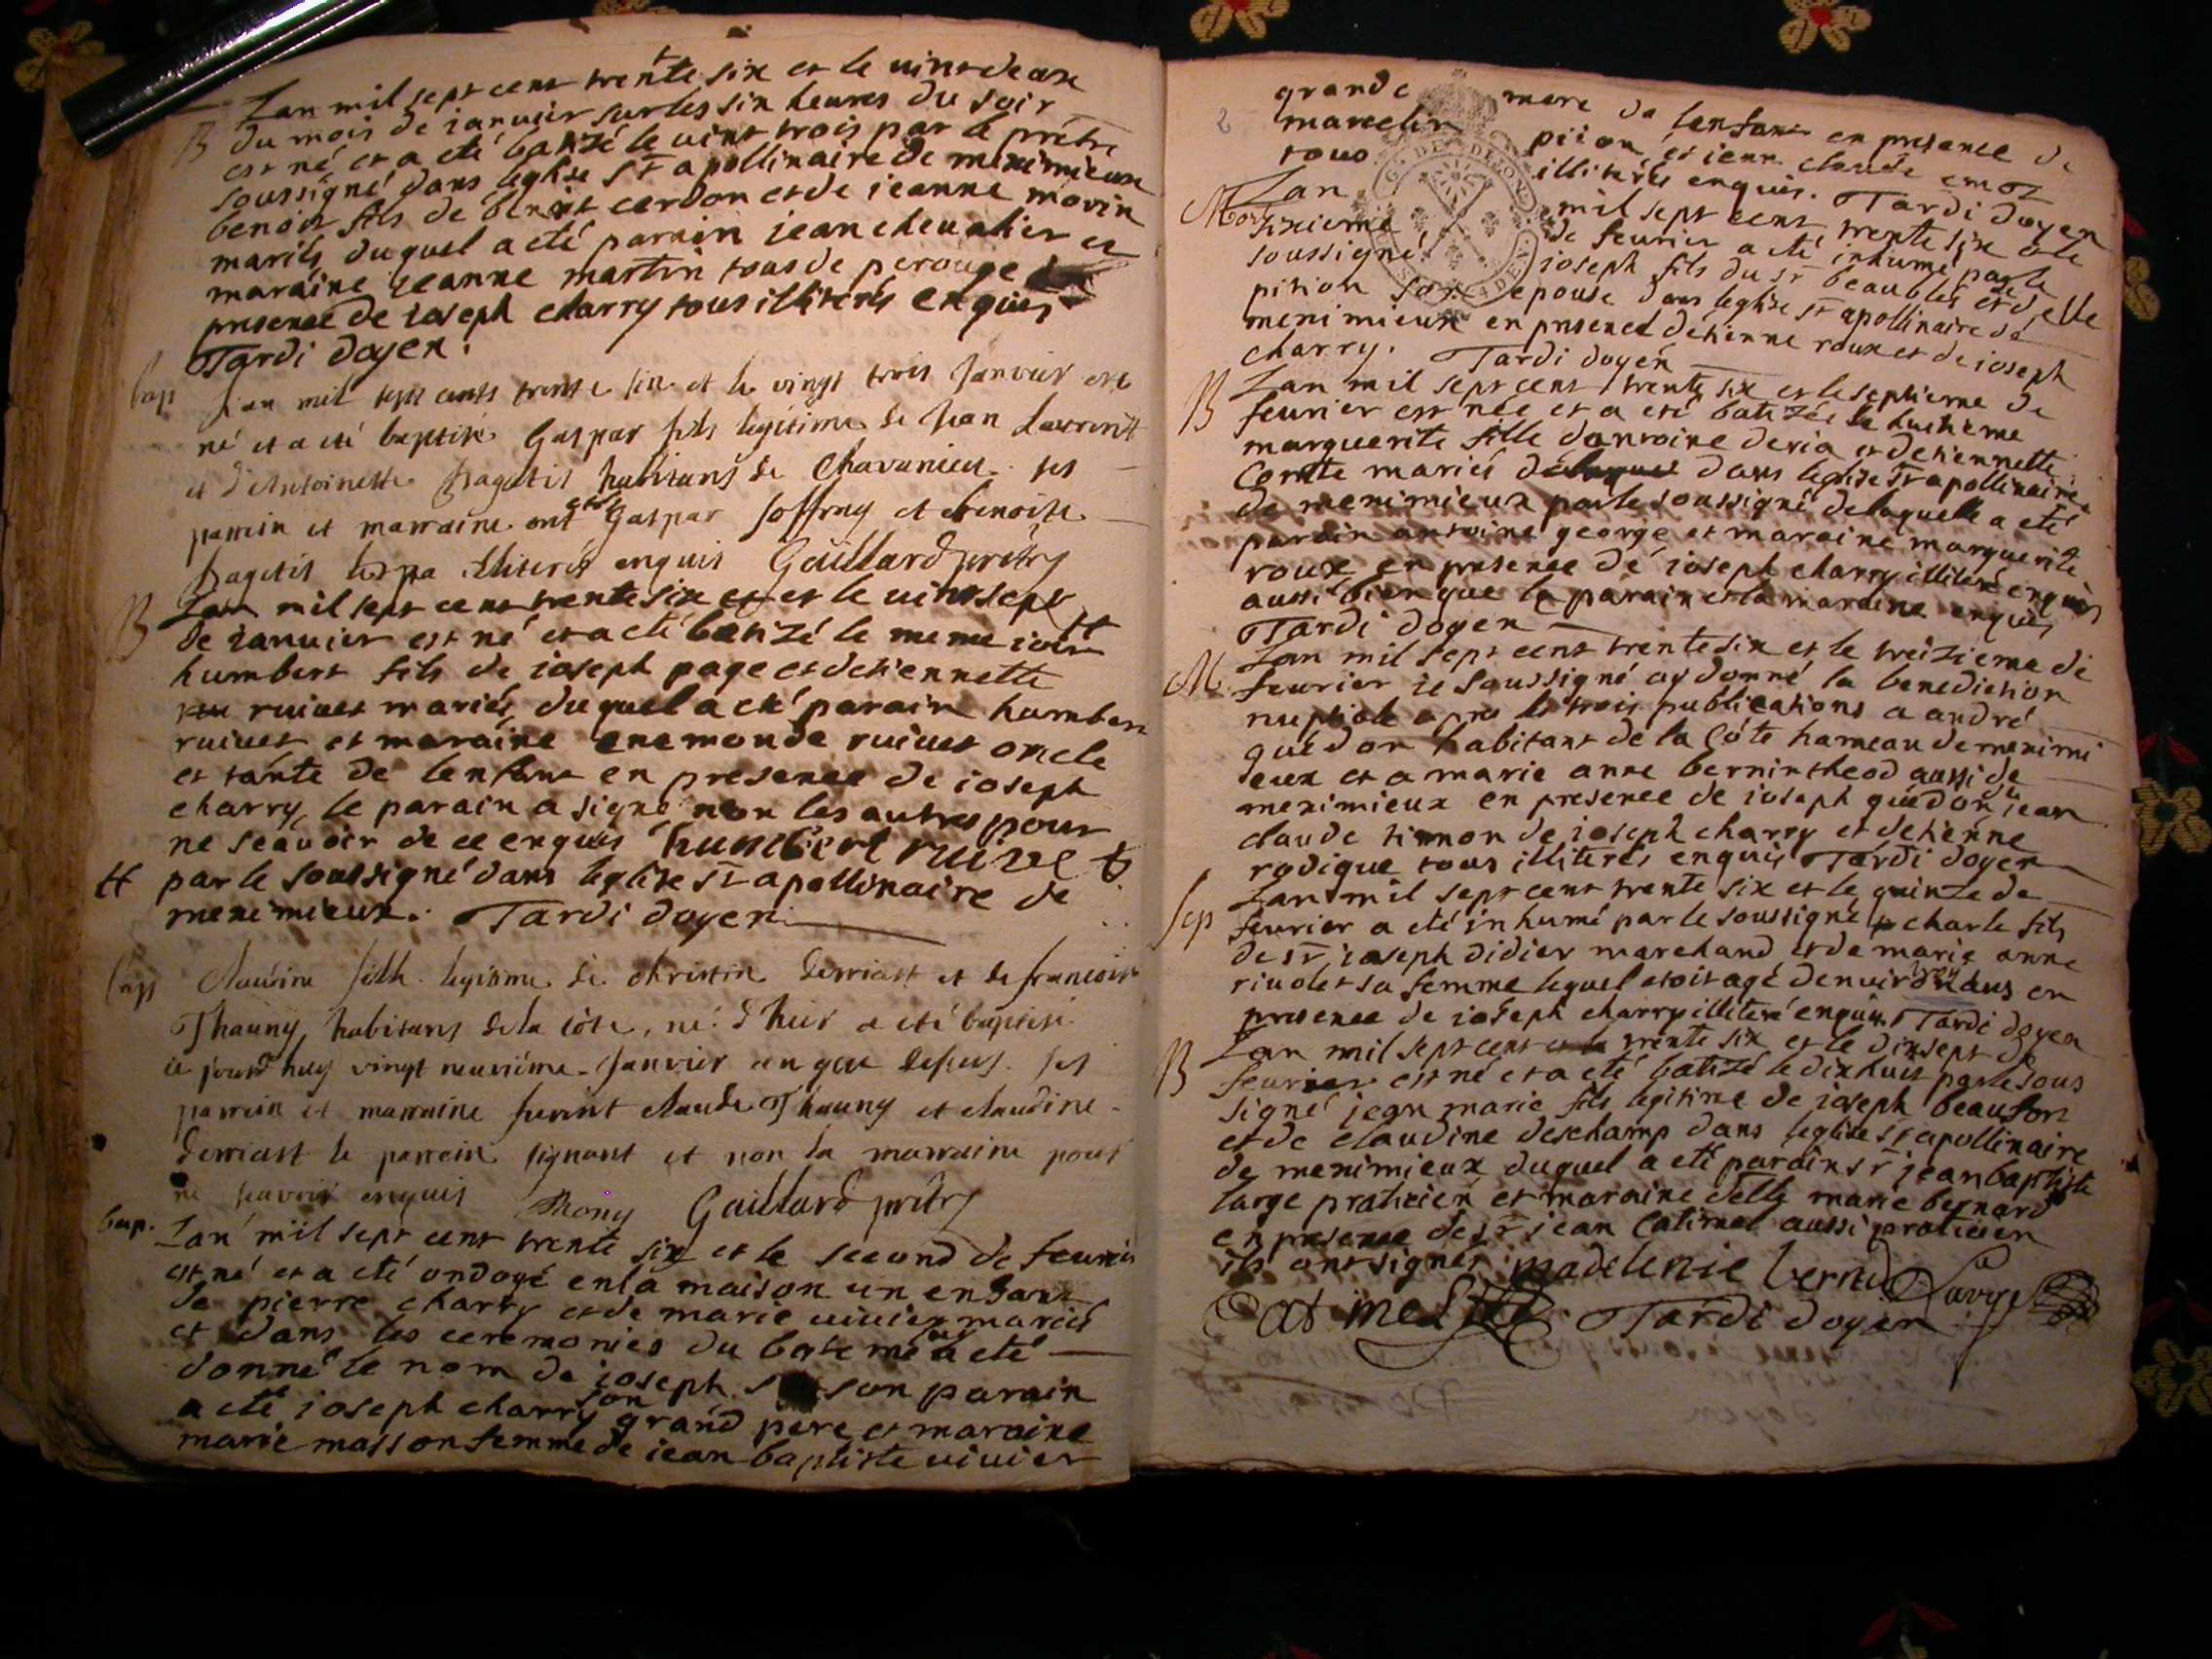 Lan mil sept cent trente six et le vint deux
B du mois de ianvier sur les six heures du soir
est né et a eté batizé le vint trois par le prêtre
soussigné dans leglise St apollinaire de meximieux
benoit fils de benoit cerdon et de ieanne morin
mariés duquel a eté parain iean chevalier et
maraine ieanne martin tous de perouge
presence de ioseph charry tous illiterés enquis
Tardi doyen.
bap L'an mil sept cents trente six et le vingt trois Janvier est
né et a eté baptisé Gaspar fils légitime de Jean Laurent
et d'Antoinette pagetit habitans de Chavanieu ses
parrein et marraine ont eté Gaspar Joffray et benoite
pagetit illiterés enquis Gaillard prêtre
B Lan mil sept cent trente six et le vint sept
de ianvier est né et a eté batizé le meme iour #
humbert fils de ioseph page et detiennette
ruivet mariés duquel a eté parain humber
ruivet et maraine enemonde ruivet oncle
et tante de lenfant en presence de ioseph
charry, le parain a signé non les autres pour
ne scavoir de ce enquis humbert ruivet
# par le soussigné dans leglise St apollinaire de
meximieux. Tardi doyen
bap Claudine fille legitime de christin derriast et de francoise
Thauny habitans de la côte, né d'hier a eté baptisé
ce jourd'huy vingt neuviéme Janvier an que dessus. ses
parrein et marraine furent claude Thauny et claudine
derriast le parrein signant et non la marraine pour
ne scavoir enquis Thony Gaillard prêtre
bap. Lan mil sept cent trente six et le second de fevrier
est né et a eté ondoyé en la maison un enfant
de pierre charry et de marie vivier mariés
et dans les ceremonies du bateme a eté
donné le nom de ioseph son parain
a eté ioseph charry son grand pere et maraine
marie masson femme de iean baptiste vivier
2
grande mere de lenfant en presence de
marcelin pition et iean claude emoz
tous illiterés enquis. Tardi doyen
Mort Lan mil sept cent trente six et le
sixieme de fevrier a eté inhumé par le
soussigné ioseph fils du sr beaublés et delle
pition son epouse dans leglise St apollinaire de
meximieux en presence detienne roux et de ioseph
charry. Tardi doyen
B Lan mil sept cent trente six et le septieme de
fevrier est née et a eté batizée le huitieme
marguerite fille dantoine deria et detiennette
Comte mariés dans leglise St apollinaire
de meximieux par le soussigné de laquelle a eté
parain antoine george et maraine marguerite
roux en presence de ioseph charry illiteré enquis
aussi bien que le parain et la maraine enquis
Tardi doyen
M. Lan mil sept cent trente six et le treizieme de
fevrier ie soussigné ay donné la benediction
nuptiale apres les trois publications a andré
guédon habitant de la Côte hameau de meximi
eux et a marie anne bernintheod aussi de
meximieux en presence de ioseph guédon iean
claude de ioseph charry et detienne
rodique tous illiterés enquis Tardi doyen
Sep Lan mil sept cent trente six et le quinze de
fevrier a eté inhumé par le soussigné charle fils
de sr ioseph didier marchand et de marie anne
rivolet sa femme lequel etoit agé denviron ans en
presence de ioseph charry illiteré enquis Tardi doyen
B Lan mil sept cent trente six et le dixsept de
fevrier est né et a eté batizé le dixhuit par le sous
signé jean marie fils legitime de ioseph beaufort
et de claudine deschamp dans leglise St apollinaire
de meximieux duquel a eté parain sr jean baptiste
large praticien et maraine delle marie bernard
en presence de sr jean Catimel aussi praticien
ils ont signés madelenie bernard Large
Catimel Tardi doyen